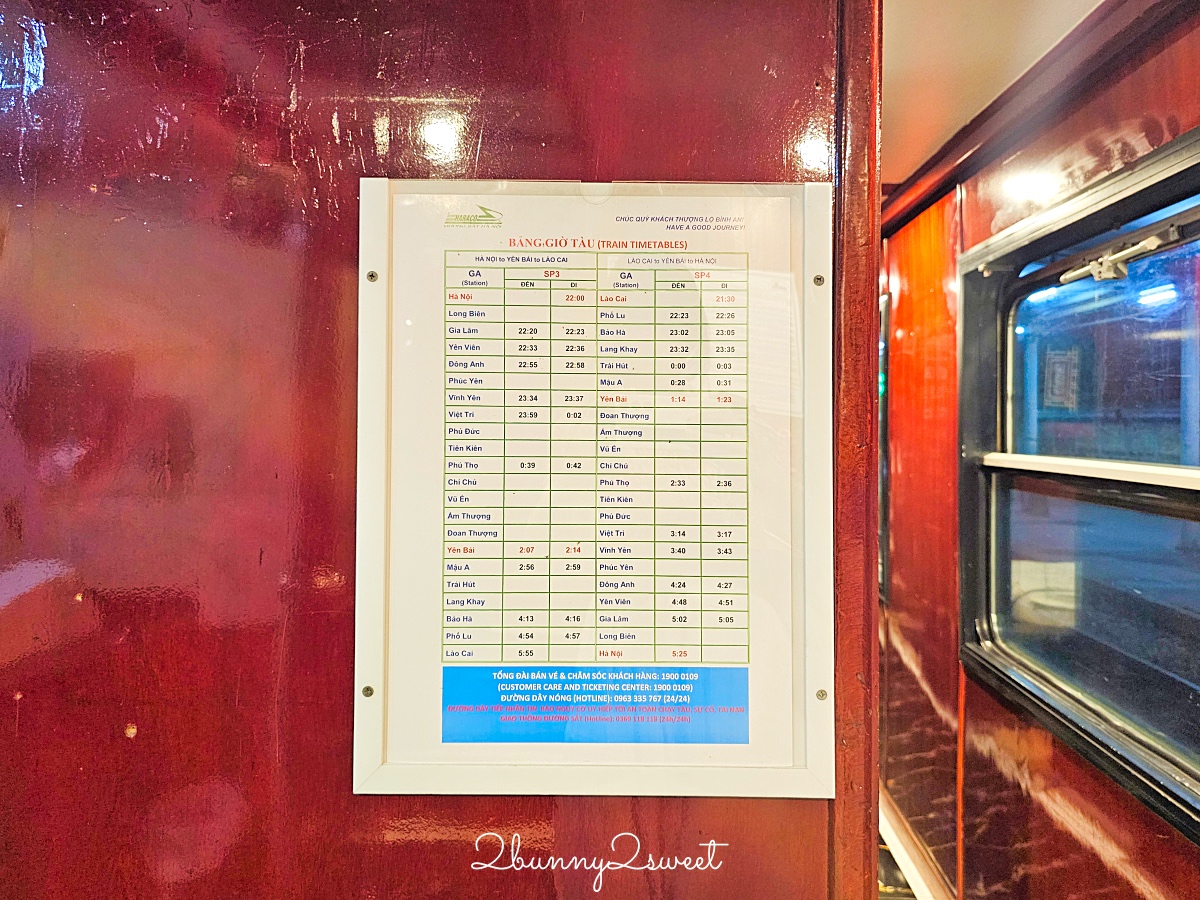 HARACO
CHÚC QUÝ KHÁCH THƯỢNG LỘ BÌNH AN!
HAVE A GOOD JOURNEY!
BẢNG GIỜ TÀU (TRAIN TIMETABLES)
HÀ NỘI to YÊN BÁI to LÀO CAI LÀO CAI to YÊN BÁI to HÀ NỘI
GA (Station) SP3 GA (Station) SP4
ĐẾN ĐI ĐẾN ĐI
Hà Nội 22:00 Lào Cai 21:30
Long Biên Phố Lu 22:23 22:26
Gia Lâm 22:20 22:23 Bảo Hà 23:02 23:05
Yên Viên 22:33 22:36 Lang Khay 23:32 23:35
Đông Anh 22:55 22:58 Trái Hút 0:00 0:03
Phúc Yên Mậu A 0:28 0:31
Vĩnh Yên 23:34 23:37 Yên Bái 1:14 1:23
Việt Trì 23:59 0:02 Đoan Thượng
Phủ Đức Ấm Thượng
Tiên Kiên Vũ Ẻn
Phú Thọ 0:39 0:42 Chí Chủ
Chí Chủ Phú Thọ 2:33 2:36
Vũ Ẻn Tiên Kiên
Ấm Thượng Phủ Đức
Đoan Thượng Việt Trì 3:14 3:17
Yên Bái 2:07 2:14 Vĩnh Yên 3:40 3:43
Mậu A 2:56 2:59 Phúc Yên
Trái Hút Đông Anh 4:24 4:27
Lang Khay Yên Viên 4:48 4:51
Bảo Hà 4:13 4:16 Gia Lâm 5:02 5:05
Phố Lu 4:54 4:57 Long Biên
Lào Cai 5:55 Hà Nội 5:25
TỔNG ĐÀI BÁN VÉ & CHĂM SÓC KHÁCH HÀNG: 1900 0109
(CUSTOMER CARE AND TICKETING CENTER: 1900 0109)
ĐƯỜNG DÂY NÓNG (HOTLINE): 0963 335 767 (24/24)
ĐƯỜNG DÂY TIẾP NHẬN TIN BÁO NGUY CƠ UY HIẾP TỚI AN TOÀN CHẠY TÀU, SỰ CỐ, TAI NẠN
GIAO THÔNG ĐƯỜNG SẮT (Hotline):
2bunny2sweet